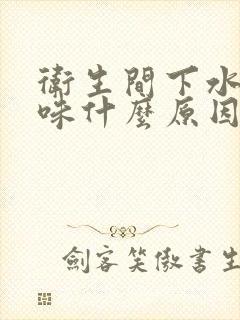 衛生間下水
味什麼原因
劍客笑傲書生